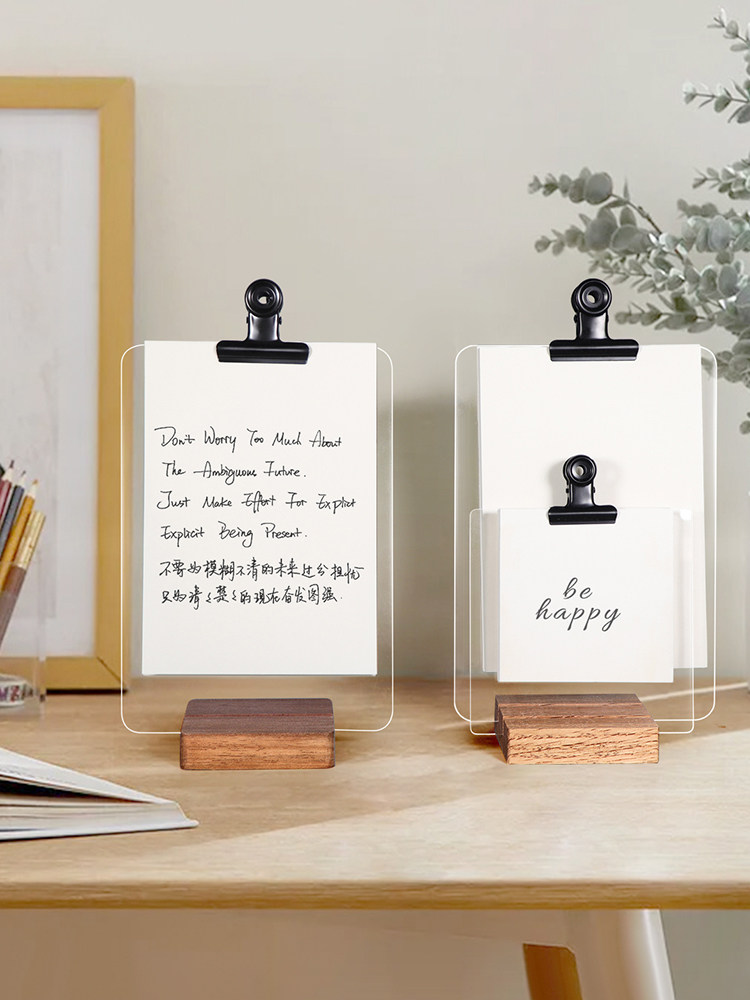 Don't Worry Too Much About
The Ambiguous Future.
Just Make Effort For Explict
Explicit Being Present.
不要为模糊不清的未来过分担忧
只为清清楚楚的现在奋发图强.
be
happy